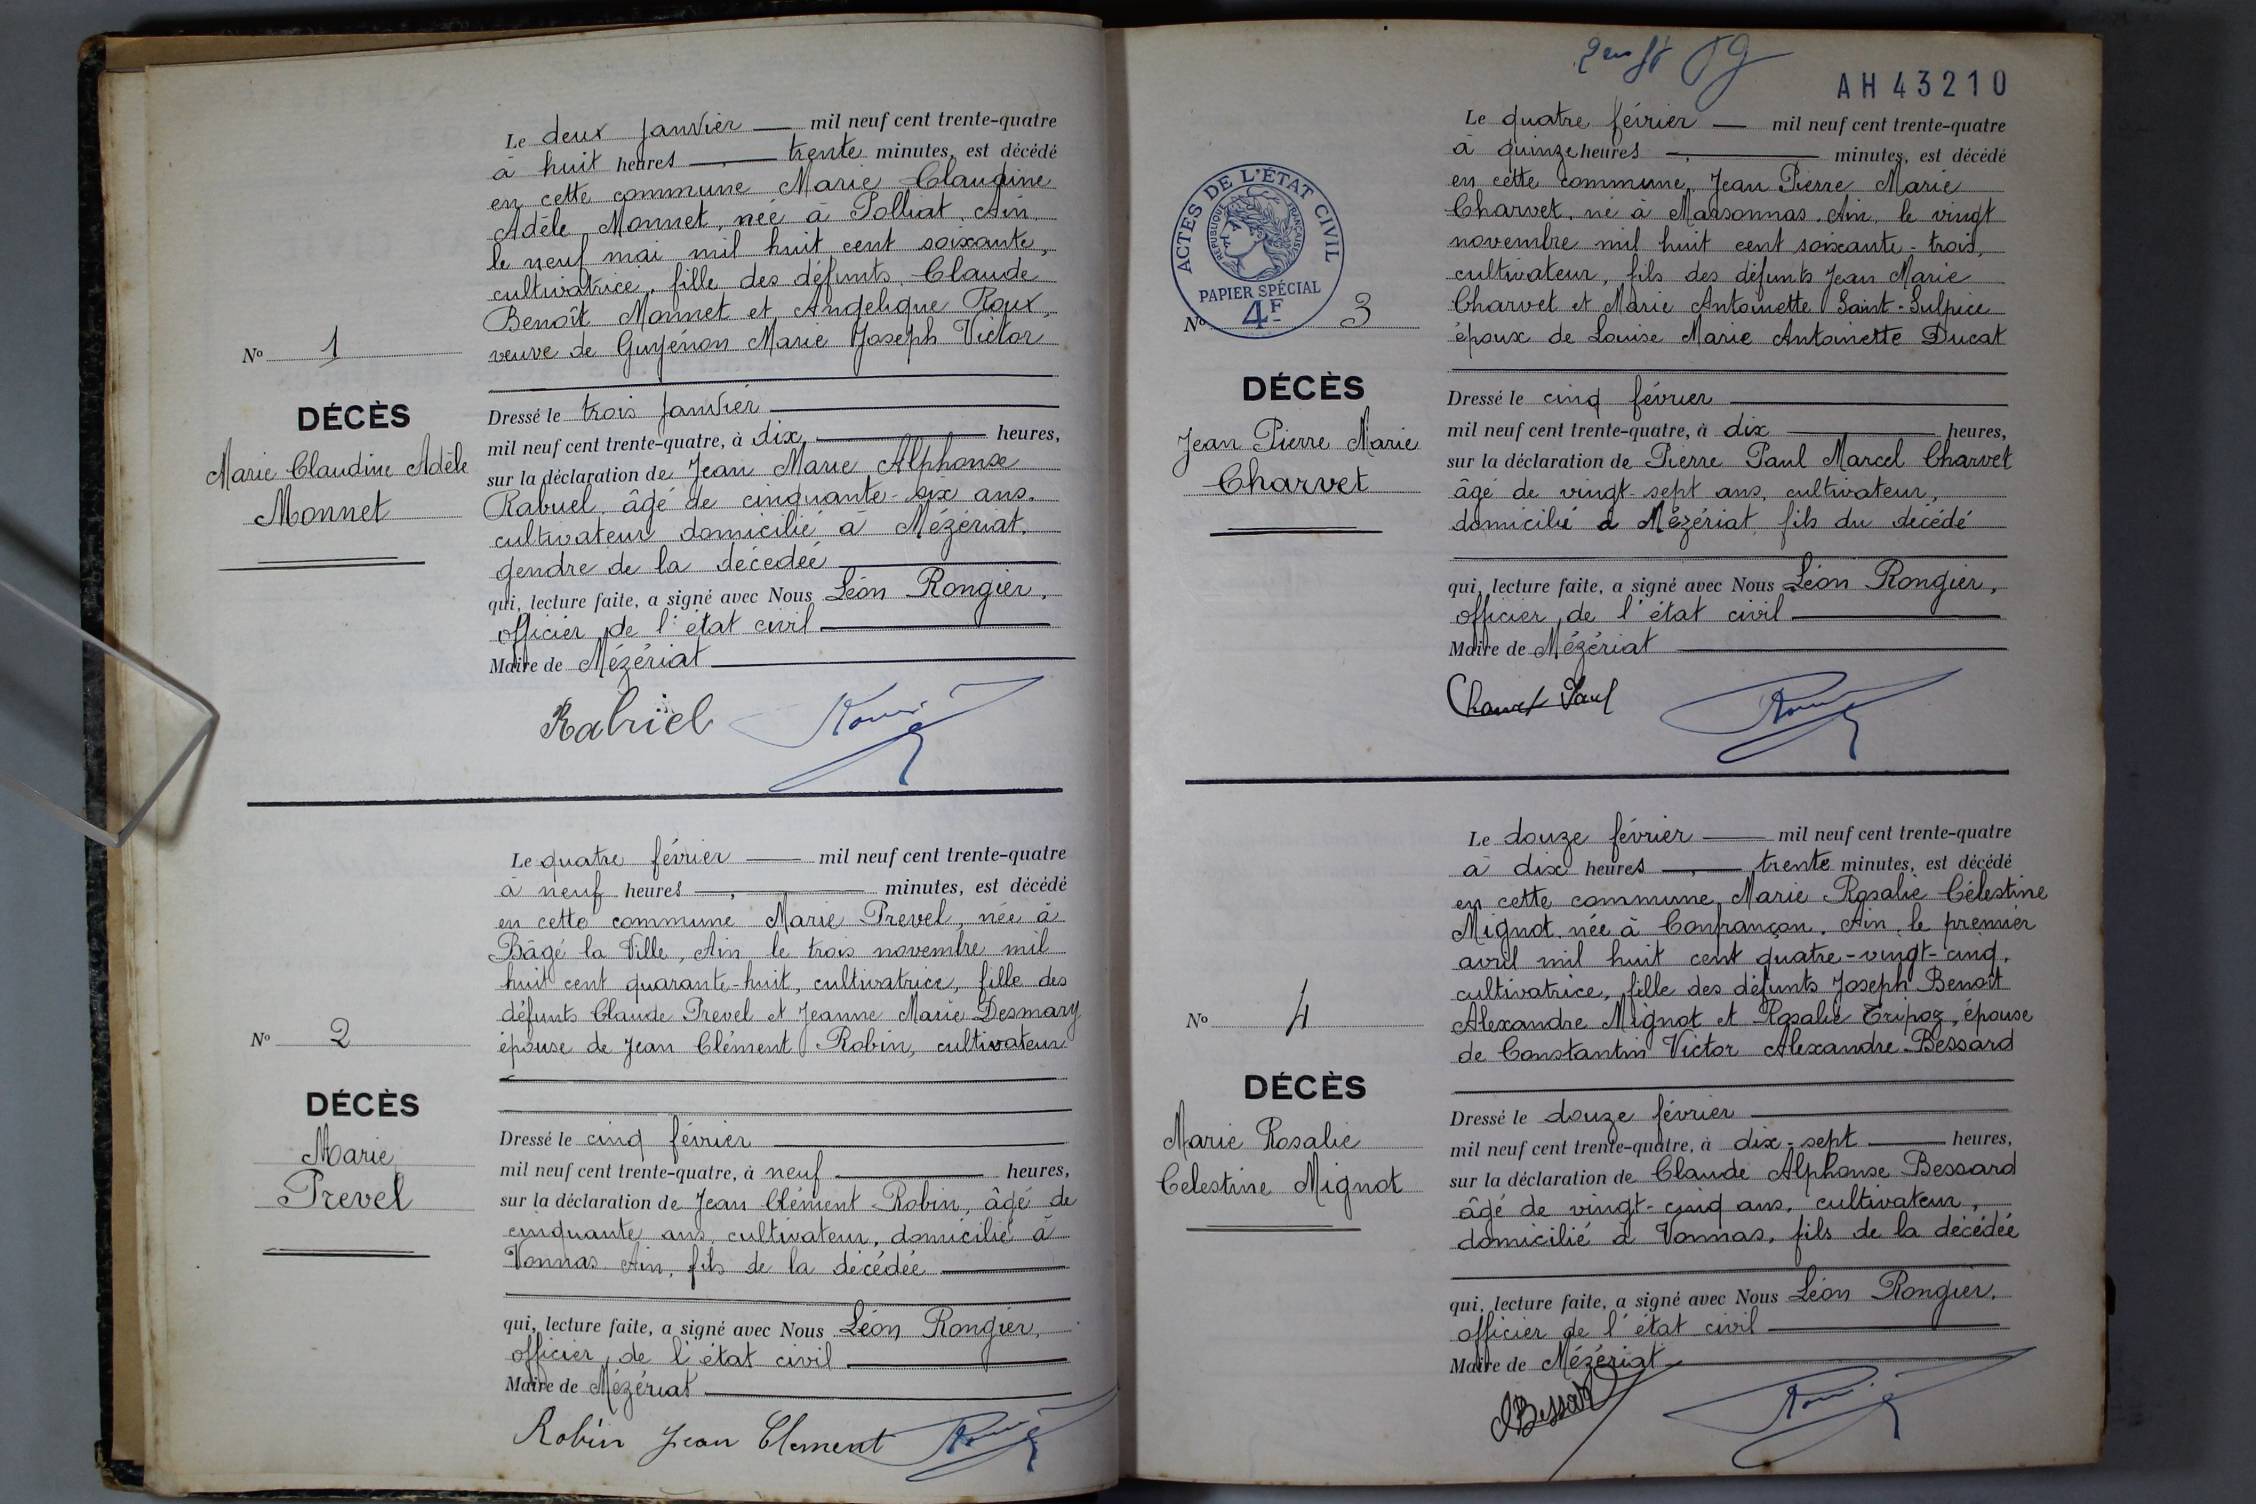 Le deux janvier mil neuf cent trente-quatre
à huit heures trente minutes, est décédé
en cette commune Marie Claudine
Adèle Monnet, née à Polliat, Ain,
le neuf mai mil huit cent soixante,
cultivatrice, fille des défunts Claude
Benoît Monnet et Angélique Roux,
veuve de Guyénon Marie Joseph Victor
N° 1
DÉCÈS
Marie Claudine Adèle
Monnet
Dressé le trois janvier
mil neuf cent trente-quatre, à dix heures,
sur la déclaration de Jean Marie Alphonse
Rabuel, âgé de cinquante-six ans,
cultivateur domicilié à Mézériat,
gendre de la décédée
qui, lecture faite, a signé avec Nous Léon Rongier,
officier de l'état civil
Maire de Mézériat
Le quatre février mil neuf cent trente-quatre
à neuf heures minutes, est décédé
en cette commune Marie Prevel, née à
Bâgé la Ville, Ain, le trois novembre mil
huit cent quarante-huit, cultivatrice, fille des
défunts Claude Prevel et Jeanne Marie Desmary
épouse de Jean Clément Robin, cultivateur
N° 2
DÉCÈS
Marie
Prevel
Dressé le cinq février
mil neuf cent trente-quatre, à neuf heures,
sur la déclaration de Jean Clément Robin, âgé de
cinquante ans, cultivateur, domicilié à
Vonnas Ain, fils de la décédée
qui, lecture faite, a signé avec Nous Léon Rongier,
officier de l'état civil
Maire de Mézériat
Robin Jean Clement
AH 43210
Le quatre février mil neuf cent trente-quatre
à quinze heures minutes, est décédé
en cette commune, Jean Pierre Marie
Charvet, né à Marsonnas, Ain, le vingt
novembre mil huit cent soixante-trois,
cultivateur, fils des défunts Jean Marie
Charvet et Marie Antoinette Saint-Sulpice
époux de Louise Marie Antoinette Ducat
ACTES DE L'ÉTAT CIVIL
RÉPUBLIQUE FRANÇAISE
PAPIER SPÉCIAL
4F
N° 3
DÉCÈS
Jean Pierre Marie
Charvet
Dressé le cinq février
mil neuf cent trente-quatre, à dix heures,
sur la déclaration de Pierre Paul Marcel Charvet
âgé de vingt-sept ans, cultivateur,
domicilié à Mézériat, fils du décédé
qui, lecture faite, a signé avec Nous Léon Rongier,
officier de l'état civil
Maire de Mézériat
Charvet Paul
Le douze février mil neuf cent trente-quatre
à dix heures trente minutes, est décédé
en cette commune, Marie Rosalie Célestine
Mignot, née à Confrançon, Ain, le premier
avril mil huit cent quatre-vingt-cinq,
cultivatrice, fille des défunts Joseph Benoît
Alexandre Mignot et Rosalie Tripoz, épouse
de Constantin Victor Alexandre Bessard
N° 4
DÉCÈS
Marie Rosalie
Celestine Mignot
Dressé le douze février
mil neuf cent trente-quatre, à dix-sept heures,
sur la déclaration de Claude Alphonse Bessard
âgé de vingt-cinq ans, cultivateur,
domicilié à Vonnas, fils de la décédée
qui, lecture faite, a signé avec Nous Léon Rongier,
officier de l'état civil
Maire de Mézériat